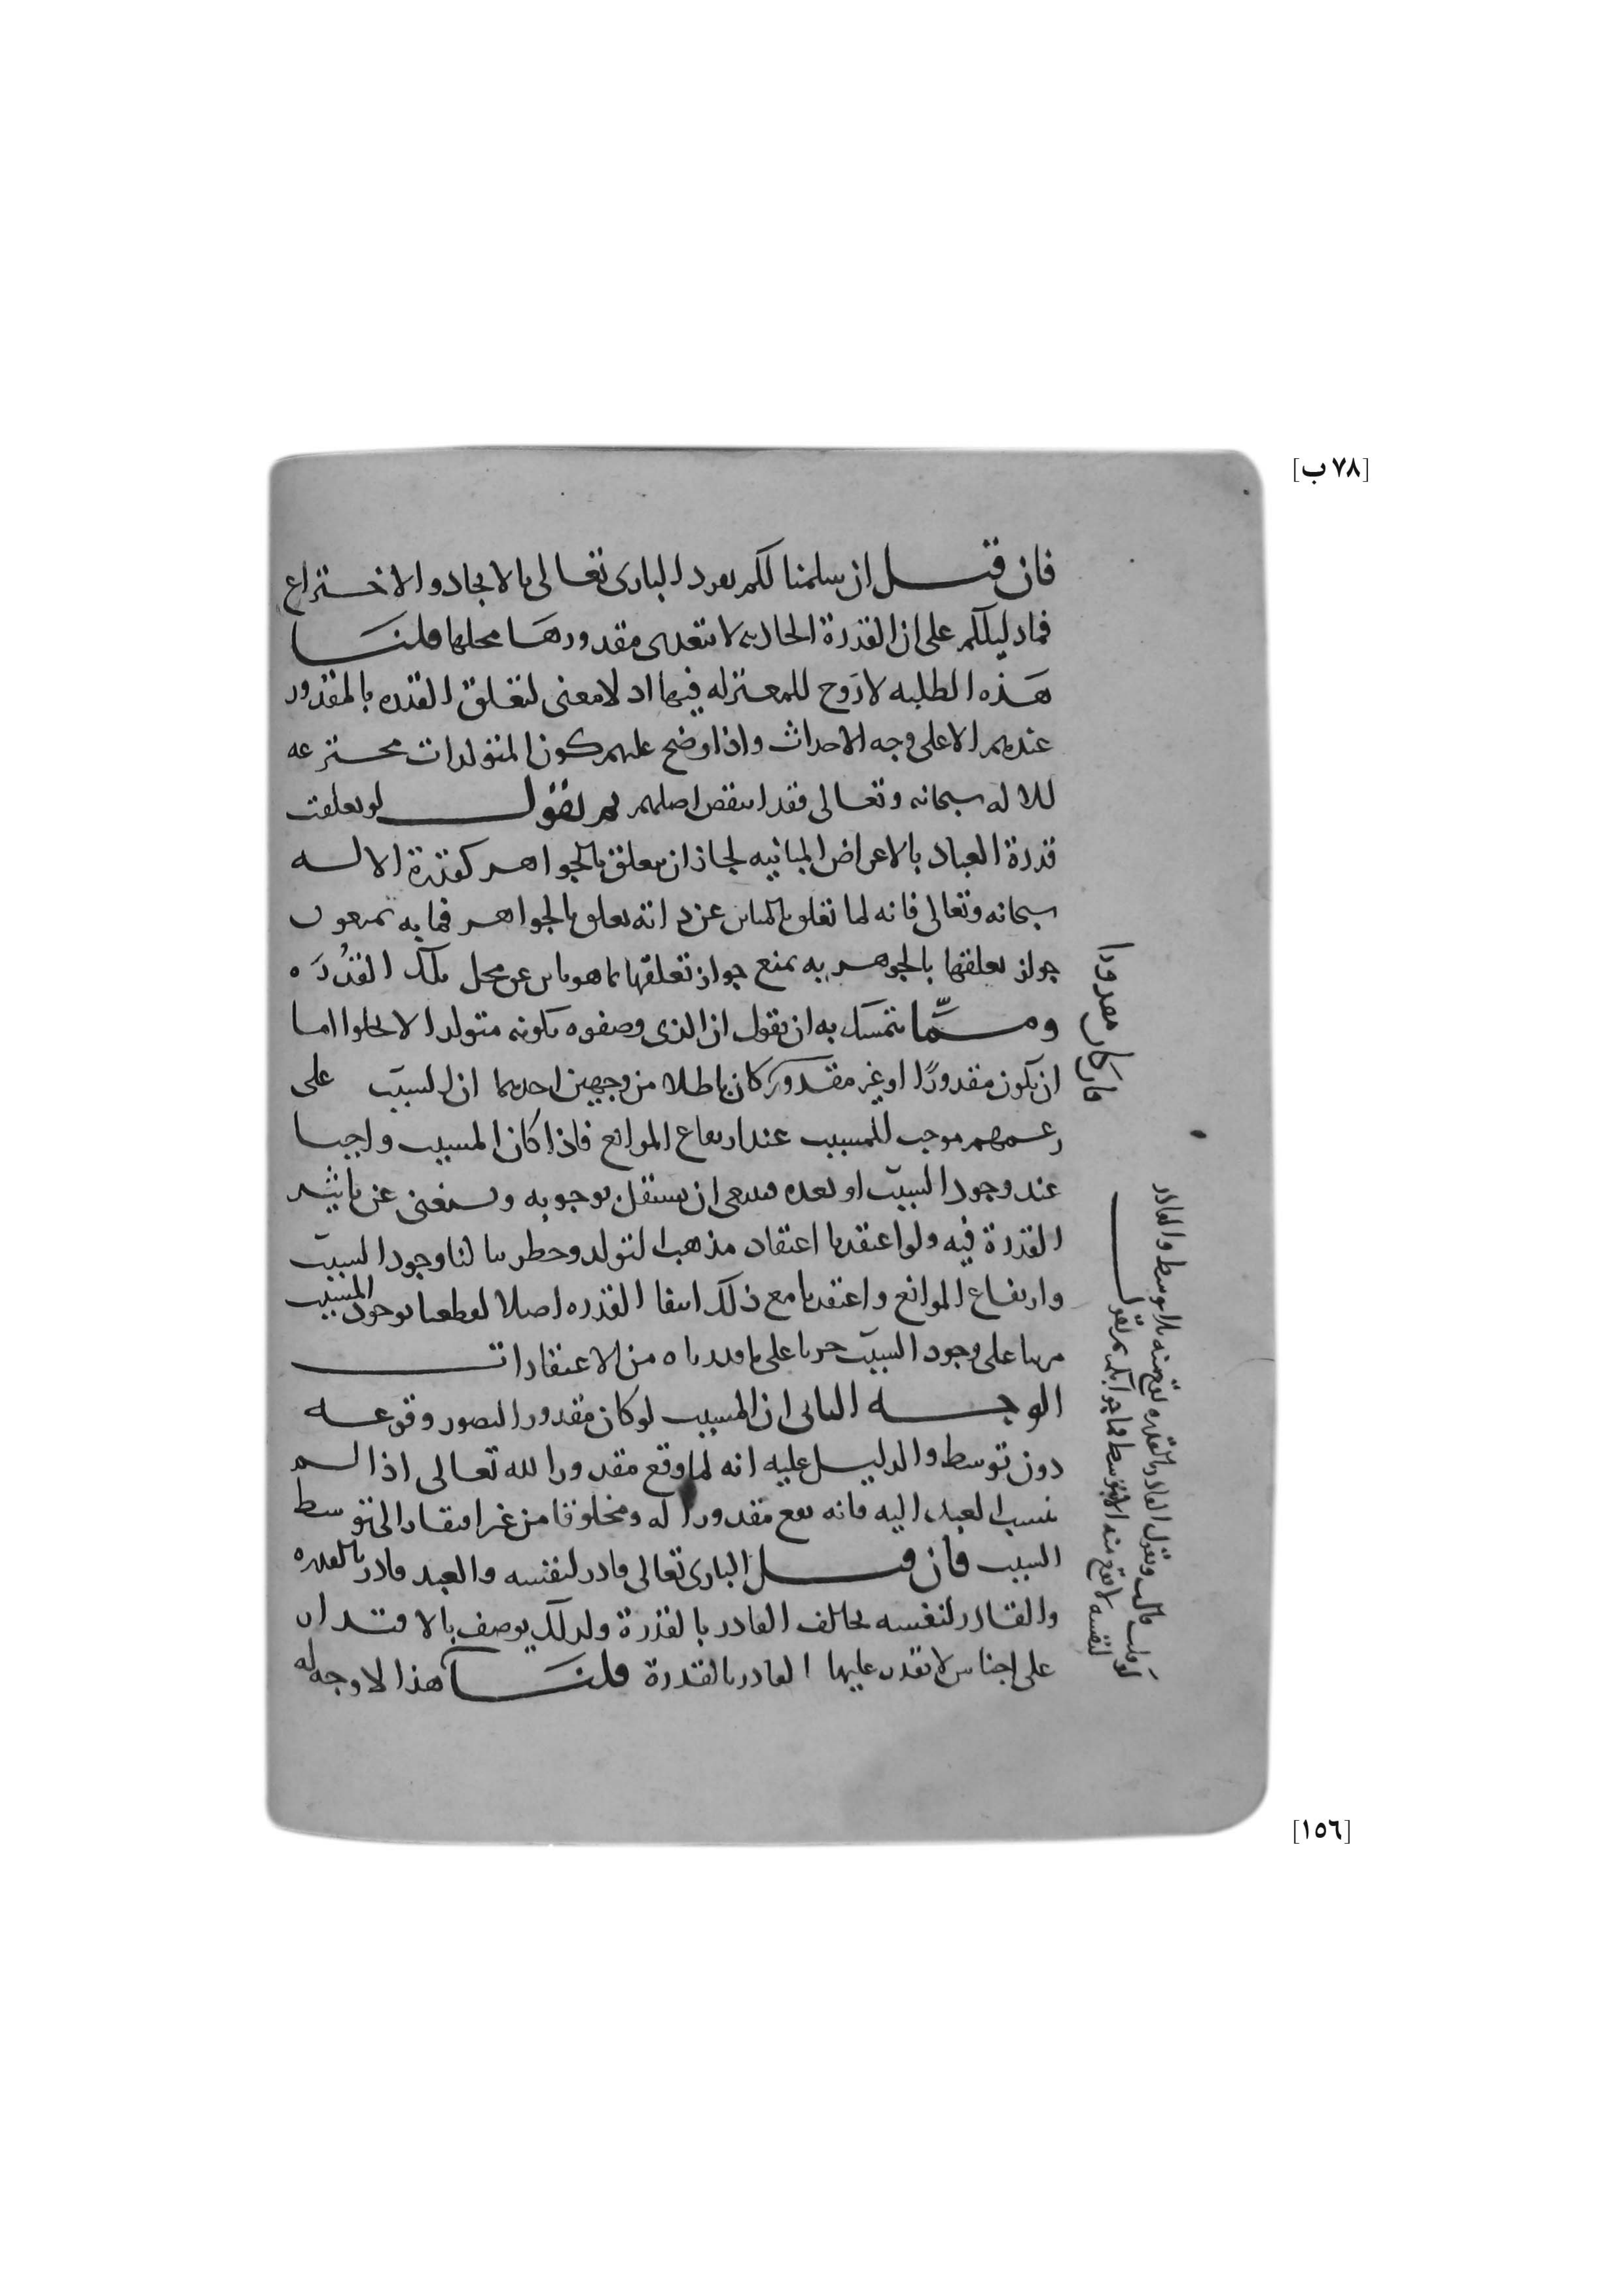 [٧٨ ب]
فان قيل ان سلمنا لكم تفرد البارى تعالى بالايجاد والاختراع
فما دليلكم على ان القدرة الحادثه لا يتعدى مقدورها محلها قلنا
هذه الطلبه لا رَوح للمعتزله فيها اذ لا معنى لتعلق القدره بالمقدور
عندهم الا على وجه الاحداث واذا وضح عليهم كون المتولدات مخترعه
للاله سبحانه وتعالى فقد انتقض اصلهم ثم نقول لو تعلقت
قدرة العباد بالاعراض المباينه لجاز ان يتعلق بالجواهر كقدرة الاله
سبحانه وتعالى فانه لما تعلق بالمباين عن ذاته تعلق بالجواهر فما به تمنعون
جواز تعلقها بالجوهر به نمنع جواز تعلقها بما هو مباين عن محل تلك القُدرَه
وممّا نتمسك به ان نقول ان الذى وصفوه بكونه متولدا لا يخلوا اما
ان يكون مقدورًا او غير مقدور كان باطلا من وجهين احدهما ان السبب على
زعمهم موجب للمسبب عند ارتفاع الموانع فاذا كان المسبب واجبا
عند وجود السبب او بعده فينبغى ان يستقل بوجوبه ويستغنى عن تاثير
القدرة فيه ولو اعتقدنا اعتقاد مذهب التولد وخطر ببالنا وجود السبب
وارتفاع الموانع واعتقدنا مع ذلك انتفا القدره اصلا لقطعنا بوجود المسبب
مرتبا على وجود السبب جريا على ما قدرناه من الاعتقادات
الوجه الثانى ان المسبب لو كان مقدورا لتصور وقوعه
دون توسط والدليل عليه انه لما وقع مقدورا لله تعالى اذا لم
نسبب العبد اليه فانه يقع مقدورا له ومخلوقا من غير افتقار الى توسط
السبب فان قيل البارى تعالى قادر لنفسه والعبد قادر بالقدره
والقادر لنفسه يخالف القادر بالقدرة ولذلك يوصف بالاقتدار
على اجناس لا يقدر عليها القادر بالقدرة قلنا هذا لا وجه له
فان كان مقدورا
لو قلب قالب وقال القادر بالقدره يقع منه بلا توسط والقادر
لنفسه لا يقع منه الا بتوسط فما جوابكم ثم نقول
[١٥٦]